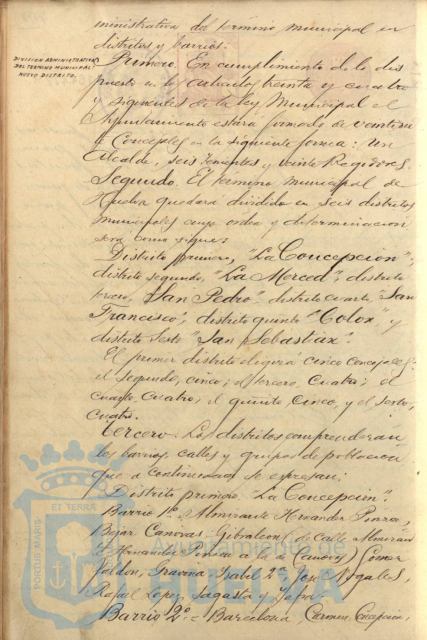 ministrativa del término municipal en
distritos y barrios.
DIVISION ADMINISTRATIVA
DEL TERMINO MUNICIPAL.
NUEVO DISTRITO.
Primero. En cumplimiento de lo dis
puesto en los articulos treinta y cuatro
y siguientes de la ley Municipal el
Ayuntamiento estará formado de veintisie
te Concejales en la siguiente forma: Un
Alcalde, seis Tenientes y veinte Regidores.
Segundo. El termino municipal de
Huelva quedará dividido en seis distritos
municipales cuyo orden y determinacion
será como sigue:
Distrito primero, "La Concepcion";
distrito segundo, "La Merced"; distrito
tercero, "San Pedro"; distrito cuarto, "San
Francisco"; distrito quinto "Colon", y
distrito sexto "San Sebastian".
El primer distrito elegirá cinco Concejales;
el segundo, cinco; el tercero, cuatro; el
cuarto, cuatro; el quinto, cinco, y el sexto,
cuatro.
Tercero. Los distritos comprenderán
los barrios, calles y grupos de poblacion
que a continuacion se expresan:
Distrito primero. "La Concepcion".
Barrio 1º. Almirante Hernandez Pinzon,
Bejar, Canovas, Gibraleon (de calle Almirante
Hernandez Pinzon a la de Canovas) Gomez
Jaldon, Gravina, Isabel 2ª, José Nogales,
Rafael Lopez, Sagasta y
Barrio 2º = Barcelona, Carmen, Concepcion,
ET TERRÆ
PORTUS MARIS
Ayuntamiento de
HUELVA